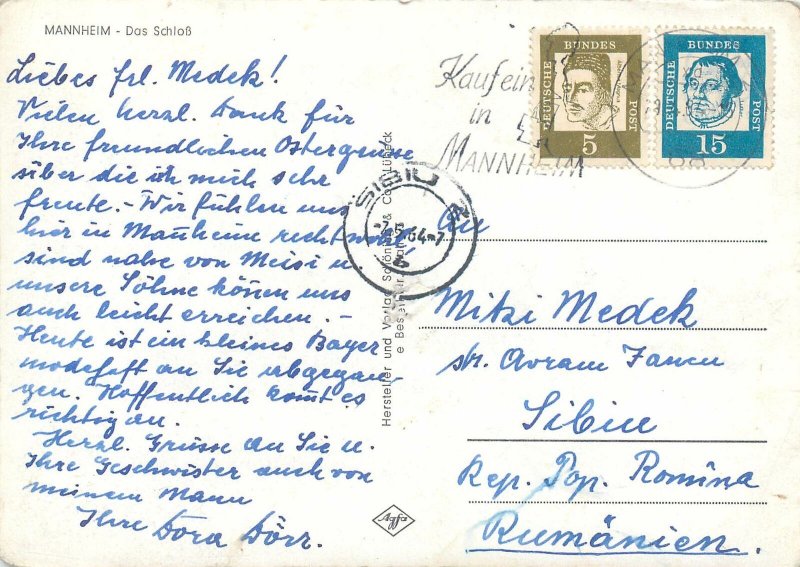 MANNHEIM - Das Schloß
Liebes Frl. Medek!
Vielen herzl. Dank für
Ihre freundlichen Ostergrüsse
über die ich mich sehr
freute. - Wir fühlen uns
hier in Manheim recht wohl
sind nahe von Meisi u.
unsere Söhne können uns
auch leicht erreichen. -
Heute ist ein kleines Bayer
modeheft an Sie abgegan
gen. Hoffentlich kommt es
richtig an.
Herzl. Grüsse an Sie u.
Ihre Geschwister auch von
meinem Mann
Ihre Dora Dörr.
Hersteller und Verlag Schöning & Co., Lübeck
Kauf ein
in
MANNHEIM
DEUTSCHE BUNDES POST
5
DEUTSCHE BUNDES POST
15
SIBIU
An
Mitzi Medek
str. Avram Iancu
Sibiu
Rep. Pop. Romîna
Rumänien.
Agfa